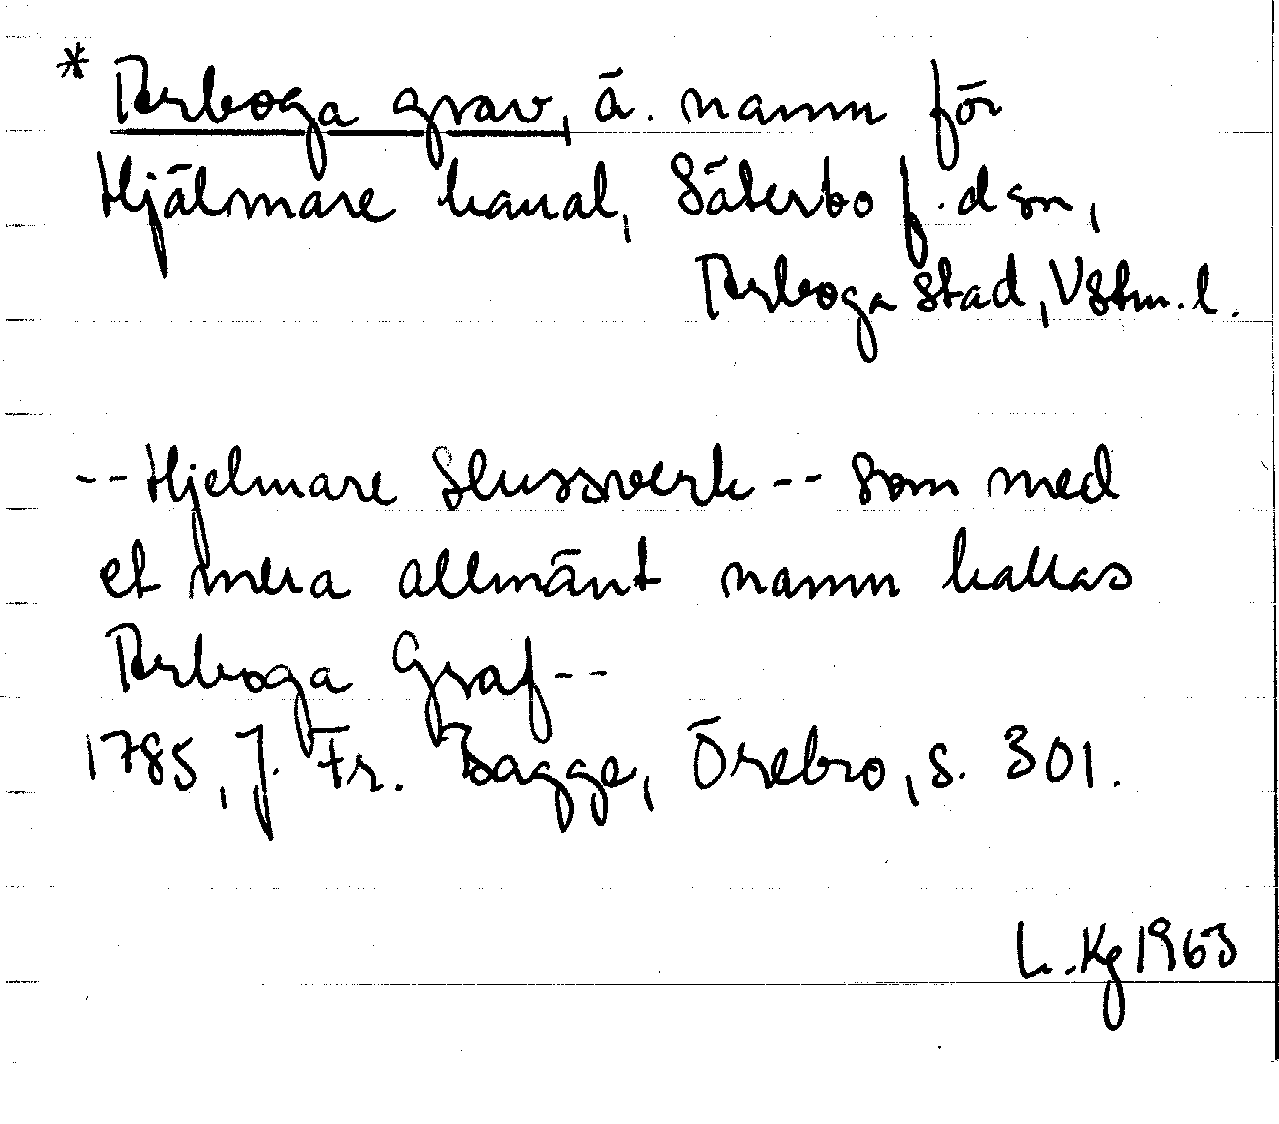 * Arboga grav, ä. namn för
Hjälmare kanal, Säterbo f.d sn,
Arboga stad, Vstm. l.
-- Hjelmare Slussverk -- som med
et mera allmänt namn kallas
Arboga Graf --
1785, J. Fr. Bagge, Örebro, s. 301.
L. Kg 1963